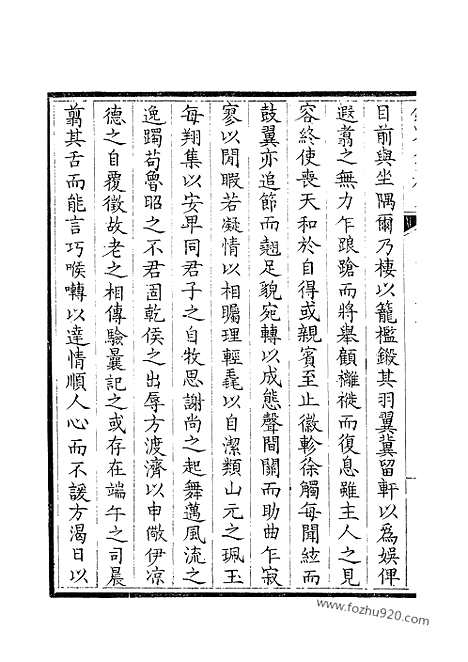 目前與坐隅爾乃棲以籠檻鍛其羽翼冀留軒以為娛俾
遐翥之無力乍踉蹌而將舉顧襳褷而復息雖主人之見
容終使喪天和於自得或親賓至止徽軫徐觸每聞絃而
鼓翼亦追節而翹足貌宛轉以成態聲間關而助曲乍寂
寥以閒暇若凝情以相矚理輕毳以自潔類山元之珮玉
每翔集以安卑同君子之自牧思謝尚之起舞邁風流之
逸躅苟魯昭之不君固乾侯之出辱方渡濟以申儆伊涼
德之自覆徵故老之相傳驗曩記之或存在端午之司晨
翦其舌而能言巧喉囀以達情順人心而不諼方渴日以
www.fozhu920.com